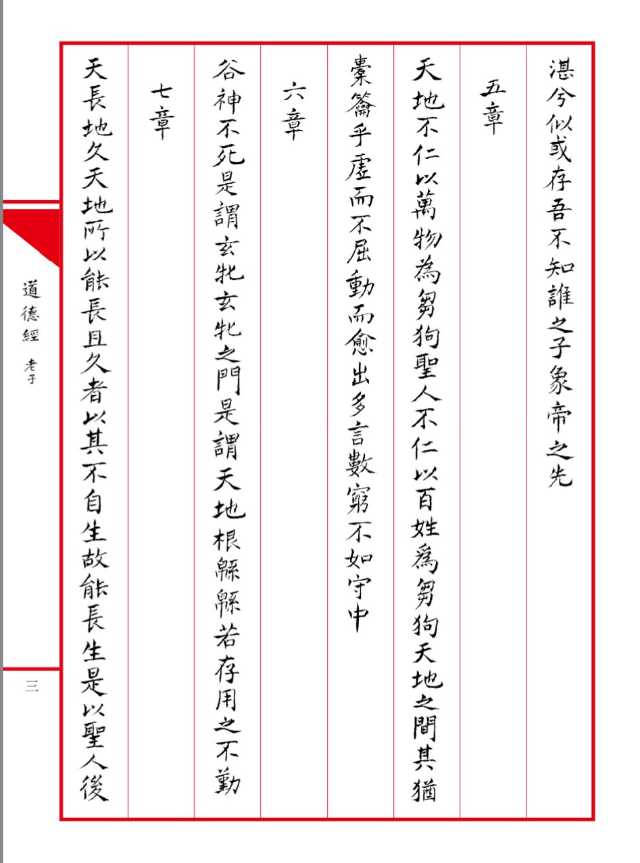 湛兮似或存吾不知誰之子象帝之先
五章
天地不仁以萬物為芻狗聖人不仁以百姓為芻狗天地之間其猶
橐籥乎虛而不屈動而愈出多言數窮不如守中
六章
谷神不死是謂玄牝玄牝之門是謂天地根緜緜若存用之不勤
七章
天長地久天地所以能長且久者以其不自生故能長生是以聖人後
道德經 老子
三